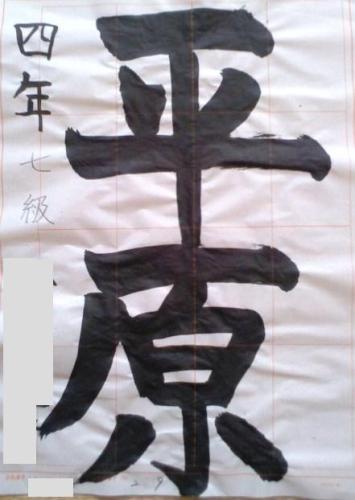 平原
四年
七級
29